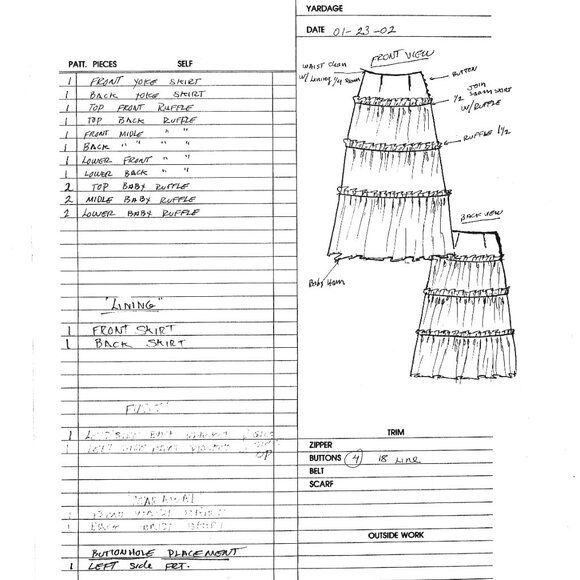 YARDAGE
DATE 01-23-02
PATT. PIECES SELF
1 FRONT YOKE SKIRT
1 BACK YOKE SKIRT
1 TOP FRONT RUFFLE
1 TOP BACK RUFFLE
1 FRONT MIDLE " "
1 BACK " " "
1 LOWER FRONT " "
1 LOWER BACK " "
2 TOP BABY RUFFLE
2 MIDLE BABY RUFFLE
2 LOWER BABY RUFFLE
"LINING"
1 FRONT SKIRT
1 BACK SKIRT
1 LEFT SIDE
1 LEFT SIDE
UP
1
1 BACK WAIST SKIRT
BUTTONHOLE PLACEMENT
1 LEFT Side FRT.
FRONT VIEW
WAIST CLEAN
W/ LINING 1/4 SEAM
BUTTON
1/2 JOIN
SEAM SKIRT
W/ RUFFLE
RUFFLE 1 1/2
Baby Hem
BACK VIEW
TRIM
ZIPPER
BUTTONS 4 18 Line
BELT
SCARF
OUTSIDE WORK